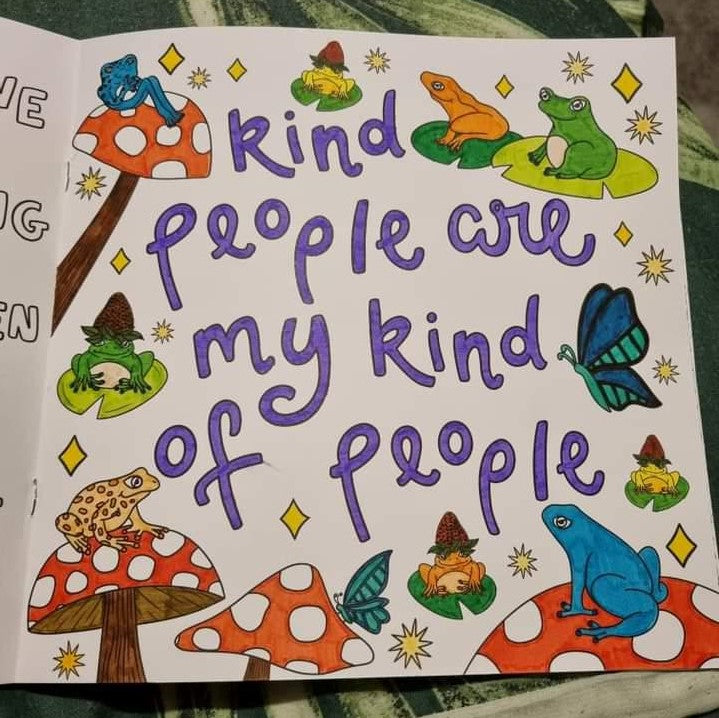 kind
people are
my kind
of people